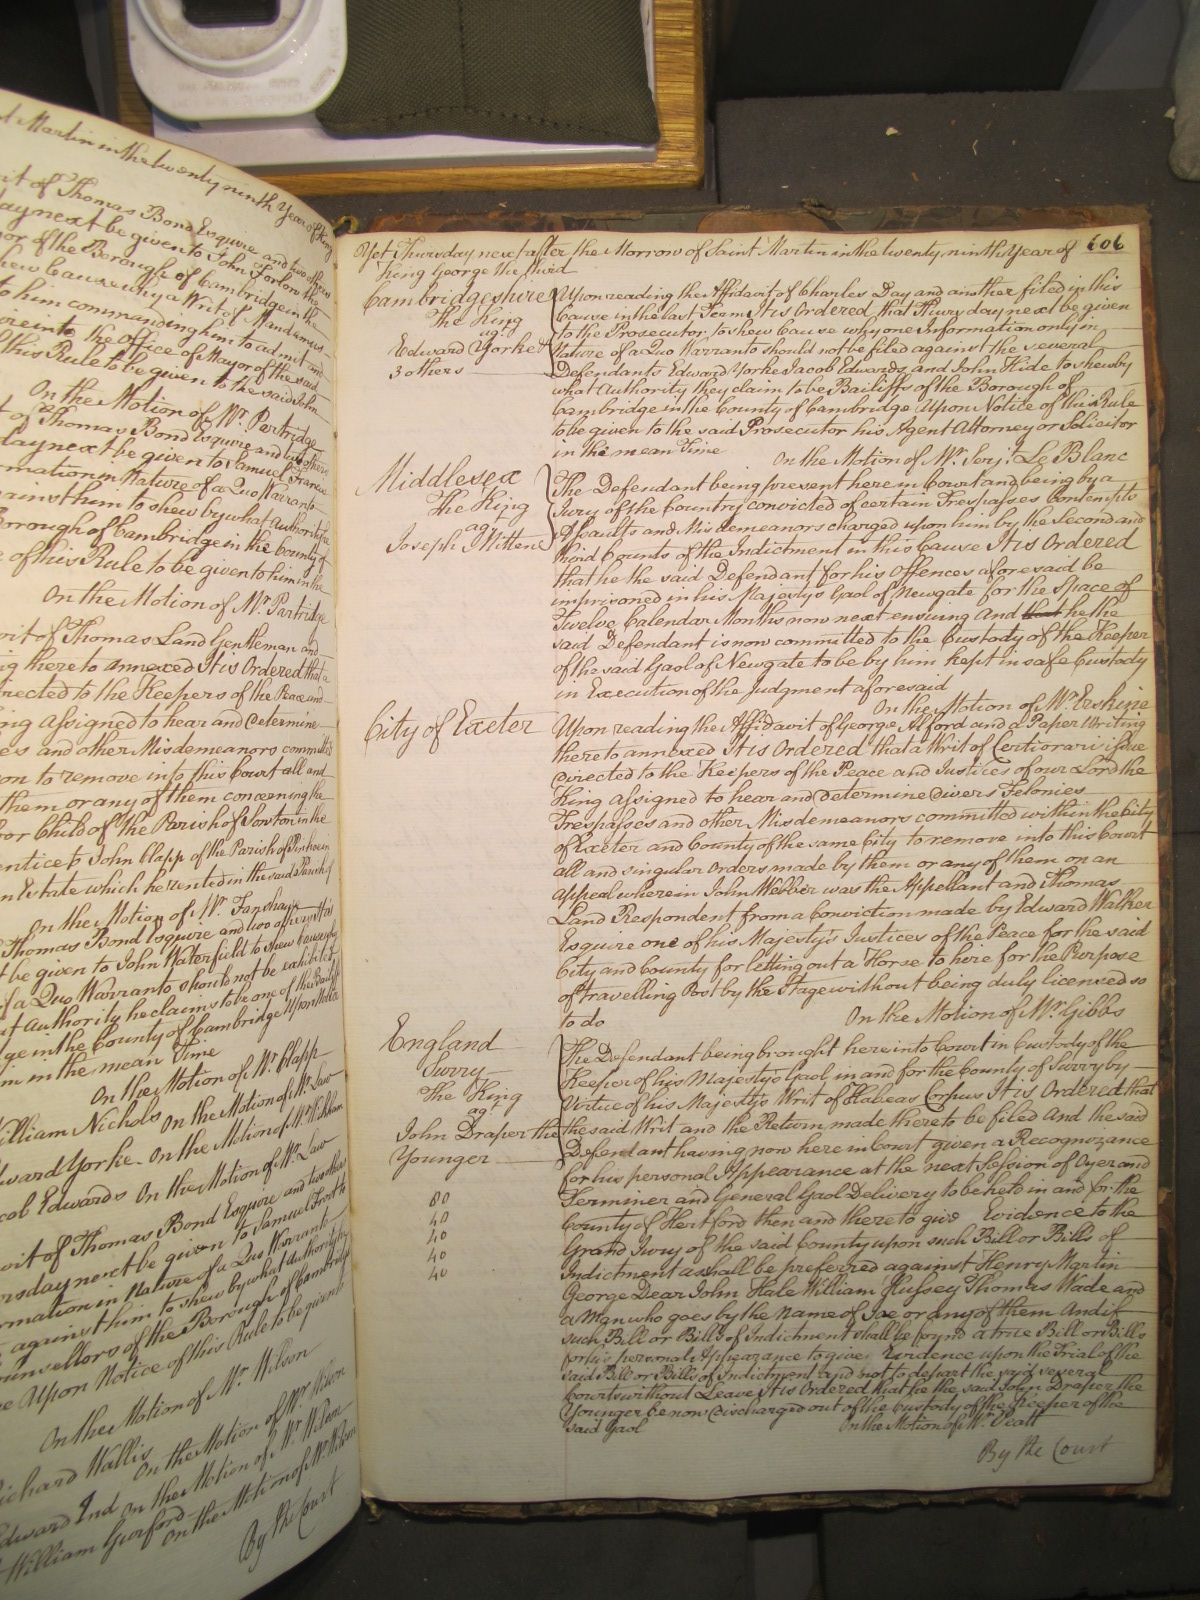 t Martin in the twenty ninth Year of King
it of Thomas Bond Esquire and two others
day next be given to John Forlow the
or of the Borough of Cambridge in the
hew Cause why a Writ of Mandamus
to him commanding him to admit and
oreinto the Office of Mayor of the said
f this Rule to be given to the said John
On the Motion of Mr. Partridge
t of Thomas Bond Esquire and two others
day next be given to Samuel Francis
rmation in Nature of a Quo Warranto
gainst him to shew by what Authority he
Borough of Cambridge in the County of
e of this Rule to be given to him in the
On the Motion of Mr. Partridge
vit of Thomas Land Gentleman and
ng thereto annexed It is Ordered that a
rected to the Keepers of the Peace and
ing assigned to hear and Determine
es and other Misdemeanors committed
on to remove into this Court all and
them or any of them concerning the
oor Child of the Parish of Sowton in the
entice to John Clapp of the Parish of Pinhoe in
n Estate which he rented in the said Parish of
On the Motion of Mr. Fanshaw
Thomas Bond Esquire and two others
t be given to John Waterfield to shew Cause why
f a Quo Warranto should not be exhibited
at Authority he claims to be one of the Bailiffs
ge in the County of Cambridge Upon Notice
m in the mean Time
On the Motion of Mr. Clapp
William Nichols On the Motion of Mr. Law
ward Yorke On the Motion of Mr.
cob Edwards On the Motion of Mr. Law
vit of Thomas Bond Esquire and two others
rsday next be given to Samuel Forth to
rmation in Nature of a Quo Warranto
against him to shew by what Authority he
ounsellors of the Borough of Cambridge
e Upon Notice of this Rule to be given to
On the Motion of Mr. Wilson
Richard Wallis On the Motion of Mr. Wilson
Edward Ind On the Motion of Mr. Wilson
William Gurford On the Motion of Mr. Wilson
By the Court
606
Yet Thursday next after the Morrow of Saint Martin in the twenty ninth Year of
King George the third
Cambridgeshire
The King
agt.
Edward Yorke &
3 others
Upon reading the Affidavit of Charles Day and another filed in this
Cause in the last Term It is Ordered that Thursday next be given
to the Prosecutor to shew Cause why one Information only in
Nature of a Quo Warranto should not be filed against the several
Defendants Edward Yorke Jacob Edwards and John Hide to shew by
what Authority they claim to be Bailiffs of the Borough of
Cambridge in the County of Cambridge Upon Notice of this Rule
to be given to the said Prosecutor his Agent Attorney or Solicitor
in the mean Time
On the Motion of Mr. Serjt. Le Blanc
Middlesex
The King
agt.
Joseph Mittene
The Defendant being present here in Court and being by a
Jury of the Country convicted of certain Trespasses Contempts
Assaults and Misdemeanors charged upon him by the Second and
third Counts of the Indictment in this Cause It is Ordered
that he the said Defendant for his Offences aforesaid be
imprisoned in his Majesty's Gaol of Newgate for the Space of
Twelve Calendar Months now next ensuing And that he the
said Defendant is now committed to the Custody of the Keeper
of the said Gaol of Newgate to be by him kept in safe Custody
in Execution of the Judgment aforesaid
On the Motion of Mr. Erskine
City of Exeter
Upon reading the Affidavit of George Alford and a Paper Writing
thereto annexed It is Ordered that a Writ of Certiorari issue
directed to the Keepers of the Peace and Justices of our Lord the
King assigned to hear and Determine divers Felonies
Trespasses and other Misdemeanors committed within the City
of Exeter and County of the same City to remove into this Court
all and singular Orders made by them or any of them on an
Appeal wherein John Webber was the Appellant and Thomas
Land Respondent from a Conviction made by Edward Walker
Esquire one of his Majesty's Justices of the Peace for the said
City and County for letting out a Horse to hire for the Purpose
of travelling Post by the Stage without being duly licensed so
to do
On the Motion of Mr. Gibbs
England
Surry
The King
agt.
John Draper the
Younger
80
40
40
40
40
The Defendant being brought here into Court in Custody of the
Keeper of his Majesty's Gaol in and for the County of Surry by
Virtue of his Majesty's Writ of Habeas Corpus It is Ordered that
the said Writ and the Return made thereto be filed And the said
Defendant having now here in Court given a Recognizance
for his personal Appearance at the next Session of Oyer and
Terminer and General Gaol Delivery to be held in and for the
County of Hertford then and there to give Evidence to the
Grand Jury of the said County upon such Bill or Bills of
Indictment as shall be preferred against Henry Martin
George Dear John Hale William Hussey Thomas Wade and
a Man who goes by the Name of Joe or any of them And if
such Bill or Bills of Indictment shall be found a true Bill or Bills
for his personal Appearance to give Evidence upon the Trial of the
said Bill or Bills of Indictment and not to depart the said several
Courts without Leave It is Ordered that he the said John Draper the
Younger be now discharged out of the Custody of the Keeper of the
said Gaol
On the Motion of Mr. Peatt
By the Court